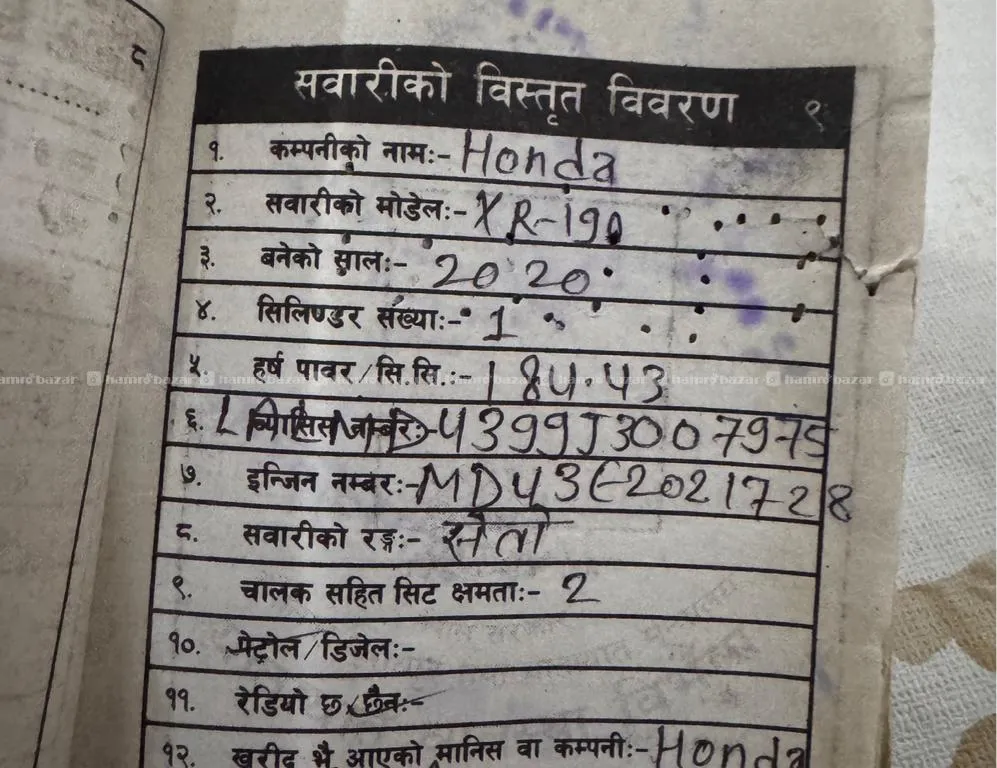 ८
सवारीको विस्तृत विवरण ९
१. कम्पनीको नाम:- Honda
२. सवारीको मोडेल:- XR-190
३. बनेको साल:- 2020
४. सिलिण्डर संख्या:- 1
५. हर्ष पावर/सि.सि.:- 184.43
hamro bazar hamro bazar hamro bazar hamro bazar hamro bazar hamro bazar hamro bazar hamro bazar
६. च्यासिस नम्बर:-
७. इन्जिन नम्बर:- MD43E-2021728
८. सवारीको रङ्ग:- सेतो
९. चालक सहित सिट क्षमता:- 2
१०. पेट्रोल/डिजेल:-
११. रेडियो छ/छैन:-
१२. खरीद भै आएको मानिस वा कम्पनी:- Honda